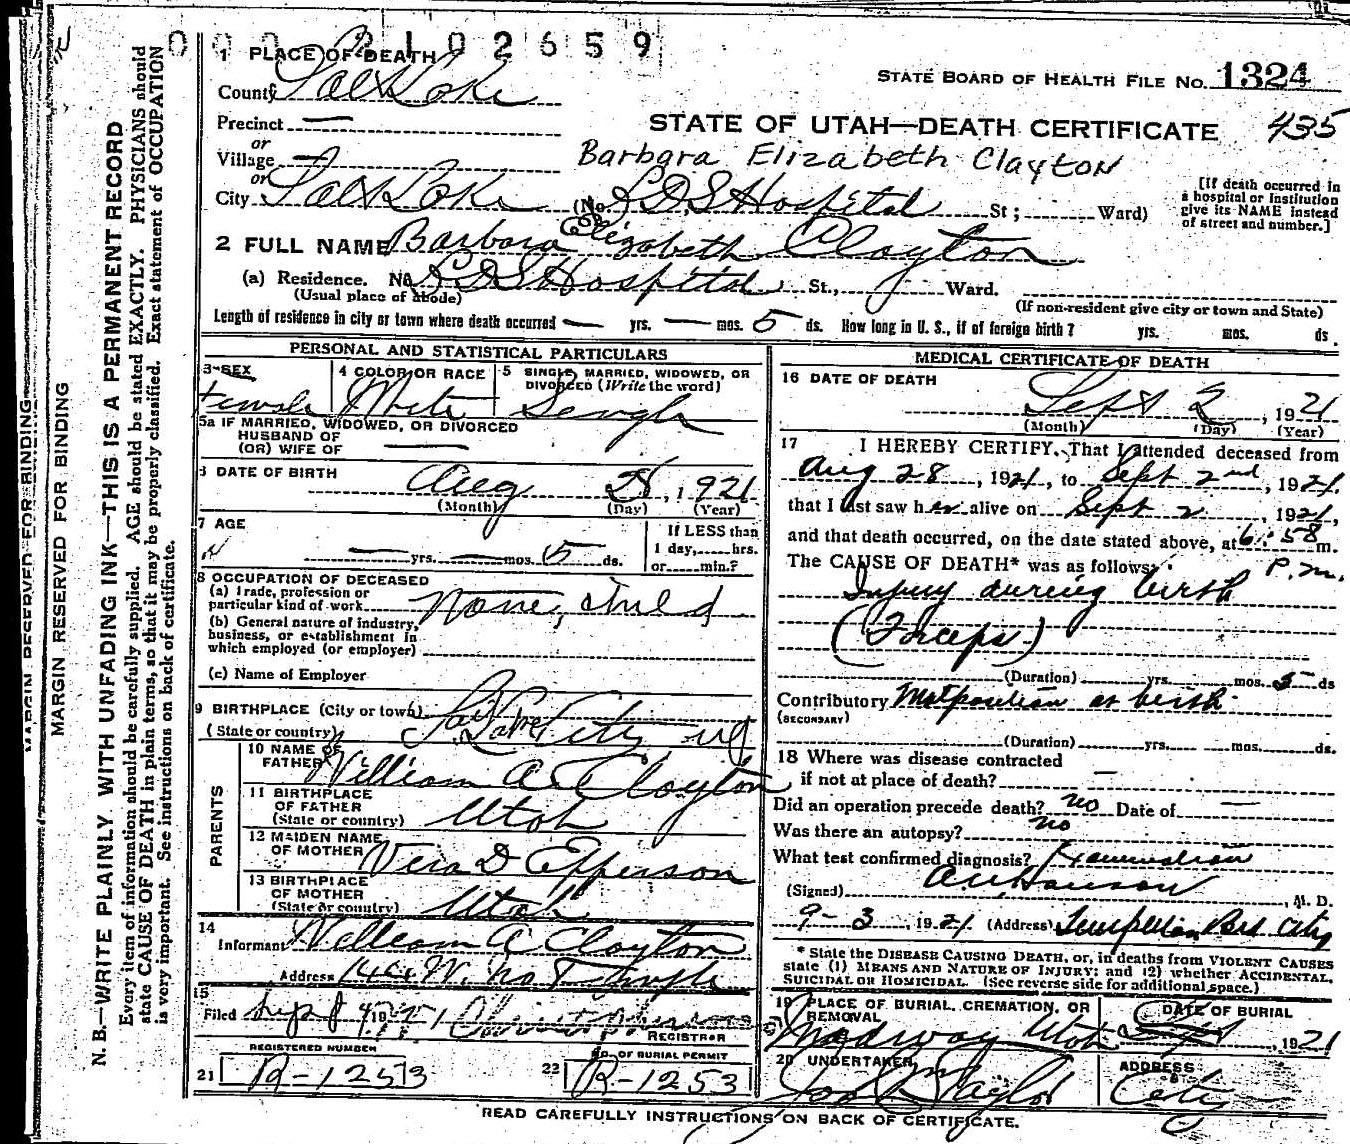 0002102659
1 PLACE OF DEATH
STATE BOARD OF HEALTH FILE NO. 1324
County Salt Lake
Precinct —
STATE OF UTAH—DEATH CERTIFICATE 435
or
Village —
Barbara Elizabeth Clayton
or
City Salt Lake (No. L.D.S Hospital St; Ward)
[If death occurred in
a hospital or institution
give its NAME instead
of street and number.]
2 FULL NAME Barbara Elizabeth Clayton
(a) Residence. No. L D S Hospital St., Ward.
(Usual place of abode) (If non-resident give city or town and State)
Length of residence in city or town where death occurred — yrs. — mos. 5 ds. How long in U. S., if of foreign birth? yrs. mos. ds.
PERSONAL AND STATISTICAL PARTICULARS
3 SEX
Female
4 COLOR OR RACE
White
5 SINGLE, MARRIED, WIDOWED, OR
DIVORCED (Write the word)
Single
5a IF MARRIED, WIDOWED, OR DIVORCED
HUSBAND OF
(OR) WIFE OF —
6 DATE OF BIRTH
Aug 28, 1921
(Month) (Day) (Year)
7 AGE
— yrs. — mos. 5 ds.
If LESS than
1 day, hrs.
or min.?
8 OCCUPATION OF DECEASED
(a) Trade, profession or
particular kind of work None, child
(b) General nature of industry,
business, or establishment in
which employed (or employer)
(c) Name of Employer
9 BIRTHPLACE (City or town)
(State or country) Salt Lake City
PARENTS
10 NAME OF
FATHER William A Clayton
11 BIRTHPLACE
OF FATHER
(State or country) Utah
12 MAIDEN NAME
OF MOTHER Vera D Epperson
13 BIRTHPLACE
OF MOTHER
(State or country) Utah
14
Informant William A Clayton
Address W. No Temple
15
Filed Sept
REGISTRAR
REGISTERED NUMBER
21 R-1253
NO. OF BURIAL PERMIT
22 R-1253
MEDICAL CERTIFICATE OF DEATH
16 DATE OF DEATH
Sept 2, 1921
(Month) (Day) (Year)
17 I HEREBY CERTIFY, That I attended deceased from
Aug 28, 1921, to Sept 2nd, 1921.
that I last saw her alive on Sept 2, 1921,
and that death occurred, on the date stated above, at 6:58 m.
The CAUSE OF DEATH* was as follows: P.m.
Injury during birth
(Forceps)
(Duration) yrs. mos. 5 ds
Contributory Malposition at birth
(SECONDARY)
(Duration) yrs. mos. ds.
18 Where was disease contracted
if not at place of death? —
Did an operation precede death? no Date of —
Was there an autopsy? no
What test confirmed diagnosis? Examination
(Signed) , M. D.
9-3, 1921 (Address)
* State the DISEASE CAUSING DEATH, or, in deaths from VIOLENT CAUSES
state (1) MEANS AND NATURE OF INJURY; and (2) whether ACCIDENTAL,
SUICIDAL OR HOMICIDAL. (See reverse side for additional space.)
19 PLACE OF BURIAL, CREMATION, OR
REMOVAL
Midway Utah
DATE OF BURIAL
1921
20 UNDERTAKER
Taylor
ADDRESS
City
READ CAREFULLY INSTRUCTIONS ON BACK OF CERTIFICATE.
MARGIN RESERVED FOR BINDING
MARGIN RESERVED FOR BINDING
N. B.—WRITE PLAINLY WITH UNFADING INK—THIS IS A PERMANENT RECORD
Every item of information should be carefully supplied. AGE should be stated EXACTLY. PHYSICIANS should
state CAUSE OF DEATH in plain terms, so that it may be properly classified. Exact statement of OCCUPATION
is very important. See instructions on back of certificate.